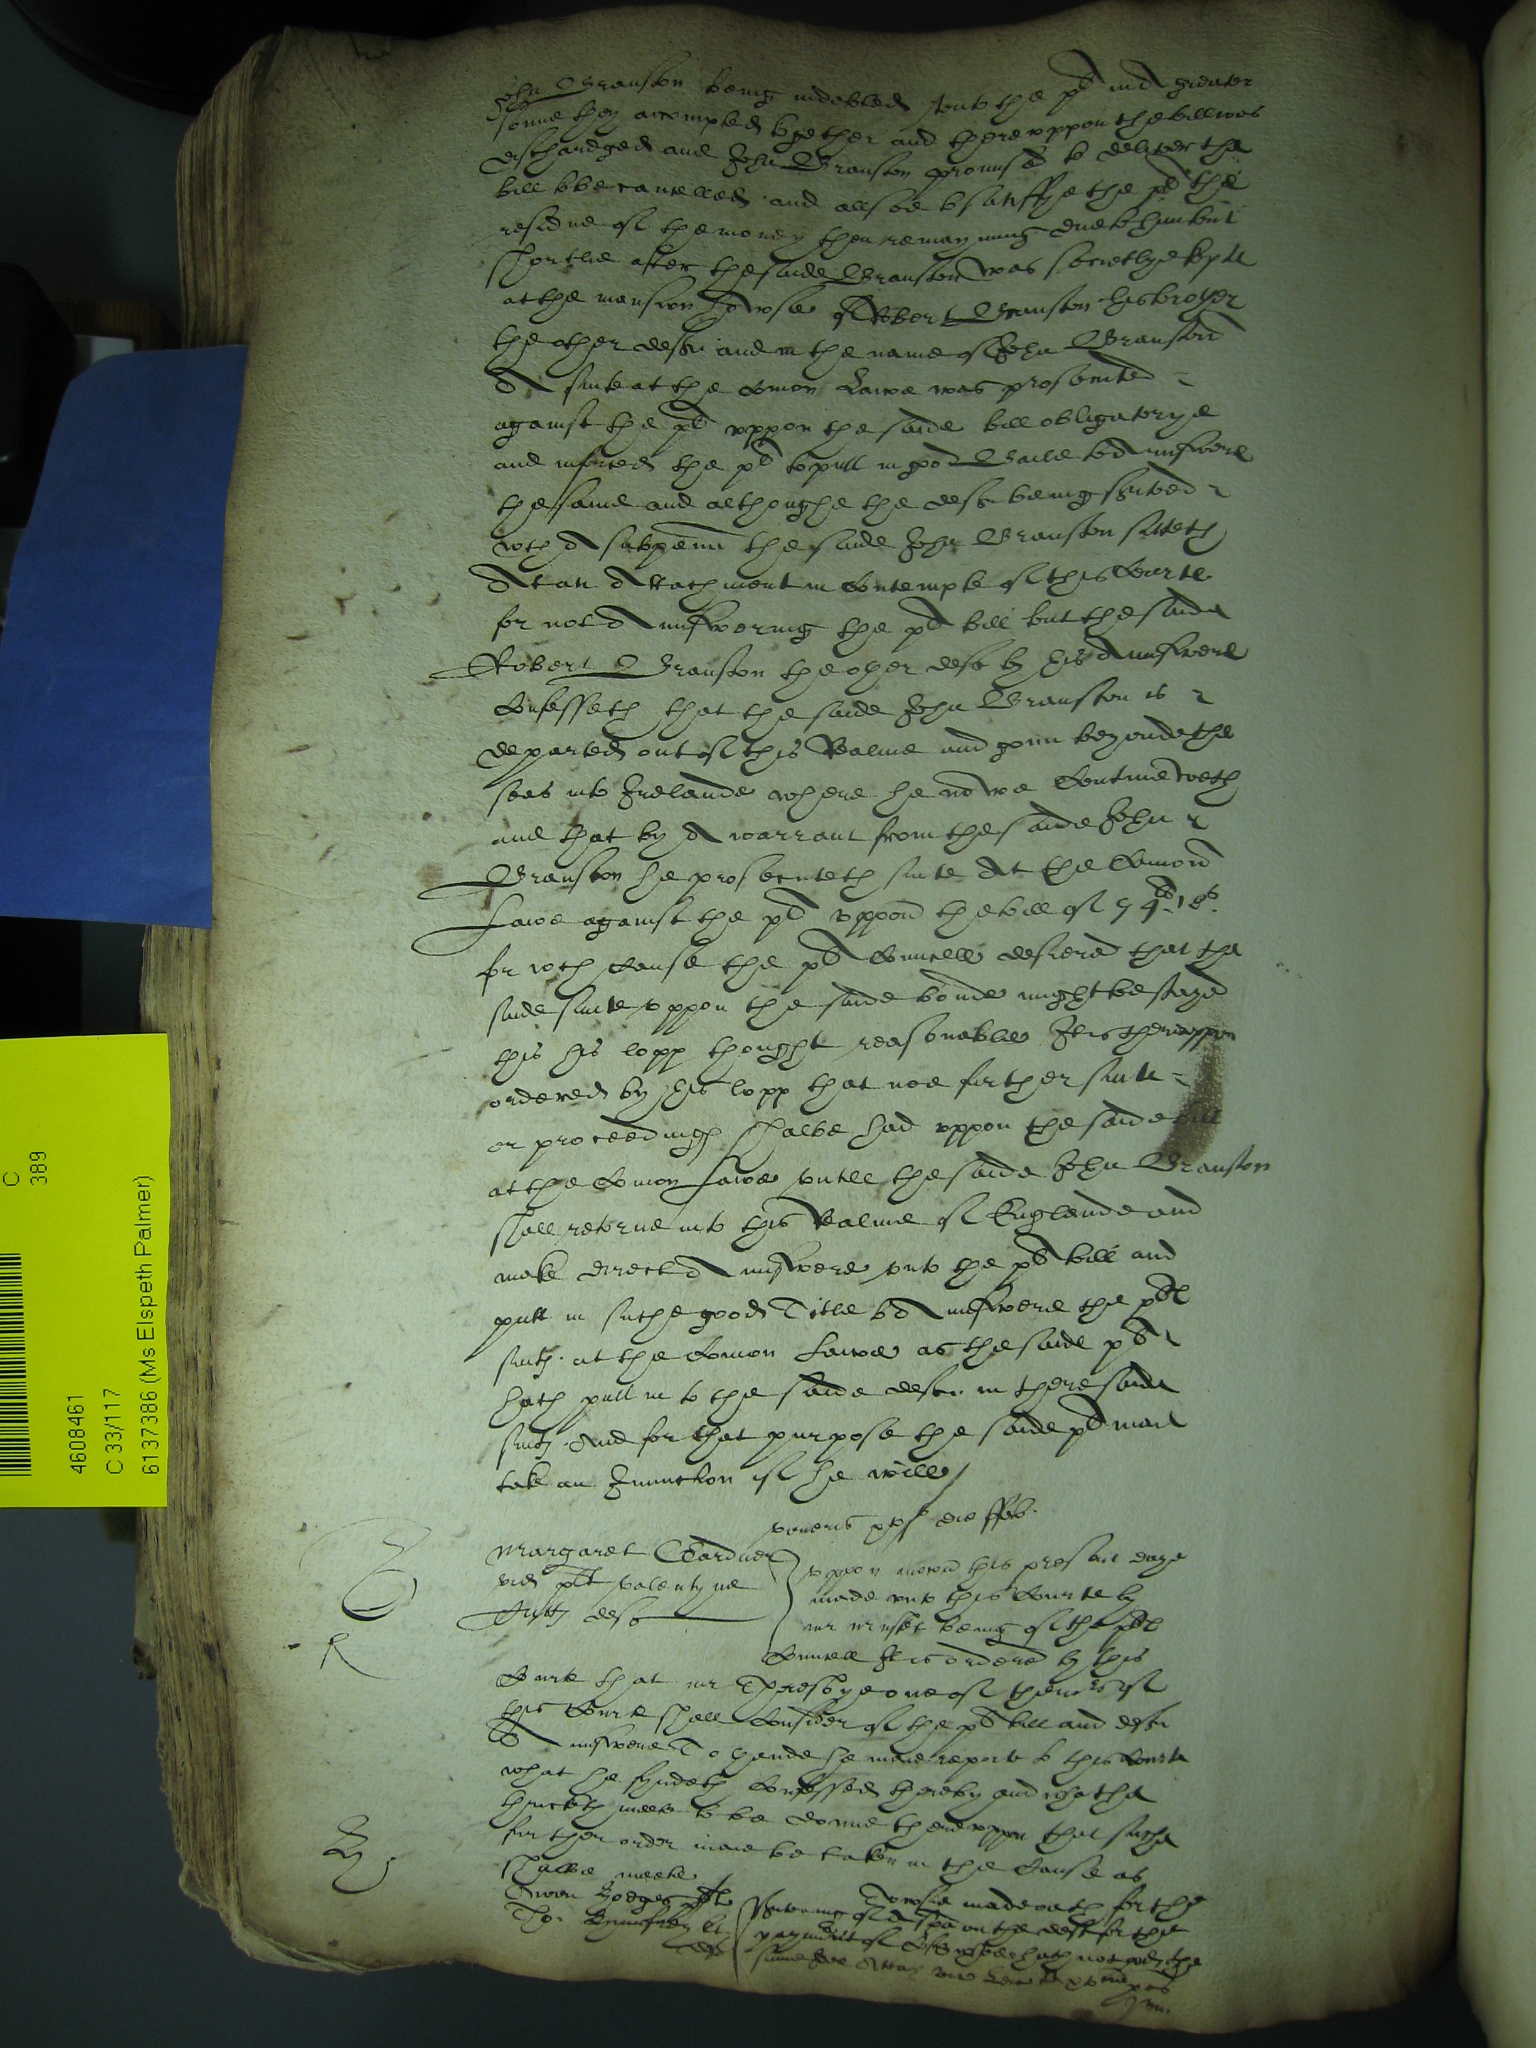 John Branston being indebted unto the pl in a greater
some they accompted together and thereuppon the bill was
dischardged and John Branston promised to deliver the
bill to be cancelled and allsoe to satisffye the pl the
residue of the money then remayning due to him but
shortlie after the saide Branston was secretlye kept
at the mansion howse of Robert Branston his brother
the other deft and in the name of John Branston
A suite at the Comon Lawe was prosecuted
against the pl uppon the saide bill obligatorye
and inforced the pl to putt in good Baile to Answere
the same and althoughe the deft being served
wth A subpena the saide John Branston sitteth
At an Attachment in Contempte of this Courte
for not Answering the pl bill but the saide
Robert Branston the other deft by his Answere
Confesseth that the saide John Branston is
departed out of this Realme and gonn beyonde the
seas into Irelande where he nowe Contineweth
and that by A warrant from the saide John
Branston he prosecuteth suite At the Comon
Lawe against the pl uppon the bill of
for wch Cause the pl Councell desiered that the
saide suite uppon the saide bonde might be stayed
this his lopp thought reasonable It is thereuppon
ordered by his lopp that noe further suite
or proceedings shalbe had uppon the saide bill
at the Comon Lawe untill the saide John Branston
shall retorne into this Realme of Englande and
make direct Answere unto the pl bill and
putt in suche good Title to Answere the pl
suite at the Comon Lawe as the saide pl
hath putt in to the saide deft in there saide
suite And for that purpose the saide pl maie
take an Iniunction if he will /
Veneris die ffeb.
Margaret Gardner
vid plt Valentyne
deft
uppon mocon this present daye
made unto this Courte by
mr being of the pl
Councell It is ordered by this
Courte that mr Thresbye one of the mrs of
this Courte shall Consider of the pl bill and deft
Answere To thende he maie reporte to this Courte
what he fyndeth Confessed thereby and what he
thincketh meete to be donne thereuppon that suche
further order maie be taken in the Cause as
shalbe meete
Owen Hodges plt
Tho:
deft
made oath for the
serving of A on the deft for the
payment of Costs whoe hath not paid the
same
C
389
4608461
C 33/117
6137386 (Ms Elspeth Palmer)